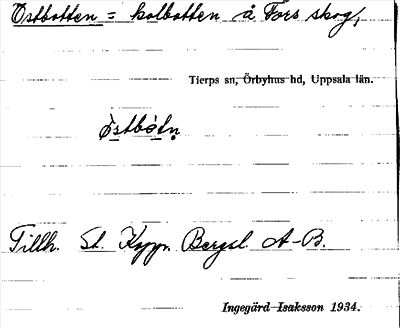 Östbotten = kolbotten å Fors skog,
Tierps sn, Örbyhus hd, Uppsala län.
östbòtn
Tillh. St. Kopp. Bergsl. A-B.
Ingegärd Isaksson 1934.